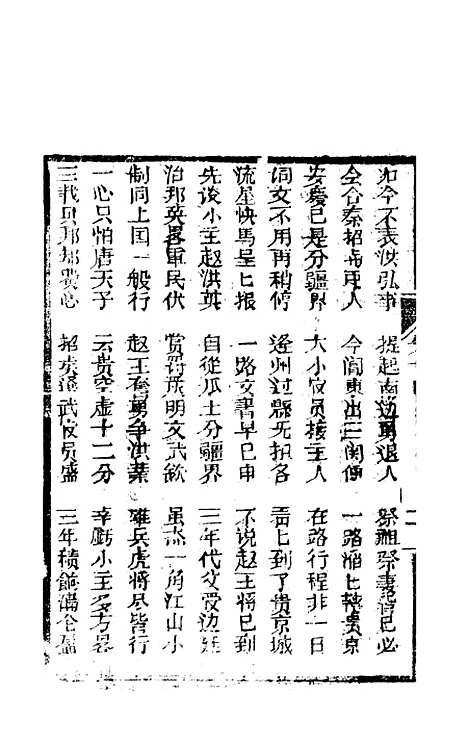 如今不表洪弘事 提起南边勇退人 祭祖祭妻已必
全合秦招人 今闻東出三関 一路上轉贵京
安慶已是分疆界 大小官员接主人 在路行程非一日
詞文不用再稍停 逢州过縣无担各 看上到了贵京城
流星快馬呈上报 一路文書早已申 不说赵王將已到
先谈小主赵洪英 自從瓜土分疆界 三年代父受边廷
治邦英畧軍民伏 赏罚严明文武欽 虽杰一角江山小
制同上国一般行 赵王有勇争洪業 雄兵虎將尽皆行
一心只怕唐天子 云贵空虚十二分 幸虧小主多方畧
三載邦心 招武官员盛 三年積餉滿仓盈